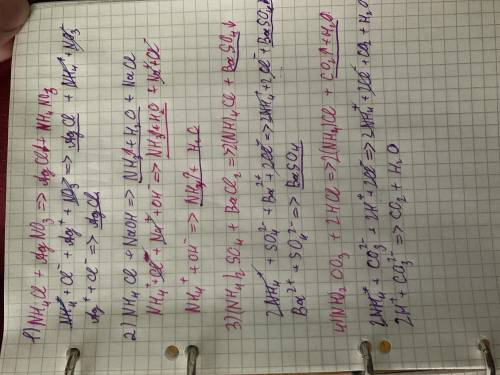 1) NH₄Cl + AgNO₃ => AgCl↓ + NH₄NO₃
NH₄⁺ + Cl⁻ + Ag⁺ + NO₃⁻ => AgCl + NH₄⁺ + NO₃⁻
Ag⁺ + Cl⁻ => AgCl
2) NH₄Cl + NaOH => NH₃↑ + H₂O + NaCl
NH₄⁺ + Cl⁻ + Na⁺ + OH⁻ => NH₃↑ + H₂O + Na⁺ + Cl⁻
NH₄⁺ + OH⁻ => NH₃↑ + H₂O
3) (NH₄)₂SO₄ + BaCl₂ => 2(NH)₄Cl + BaSO₄↓
2NH₄⁺ + SO₄²⁻ + Ba²⁺ + 2Cl⁻ => 2NH₄⁺ + 2Cl⁻ + BaSO₄↓
Ba²⁺ + SO₄²⁻ => BaSO₄
4) (NH₄)₂CO₃ + 2HCl => 2(NH₄Cl + CO₂↑ + H₂O
2NH₄⁺ + CO₃²⁻ + 2H⁺ + 2Cl⁻ => 2NH₄⁺ + 2Cl⁻ + CO₂ + H₂O
2H⁺ + CO₃²⁻ => CO₂ + H₂O